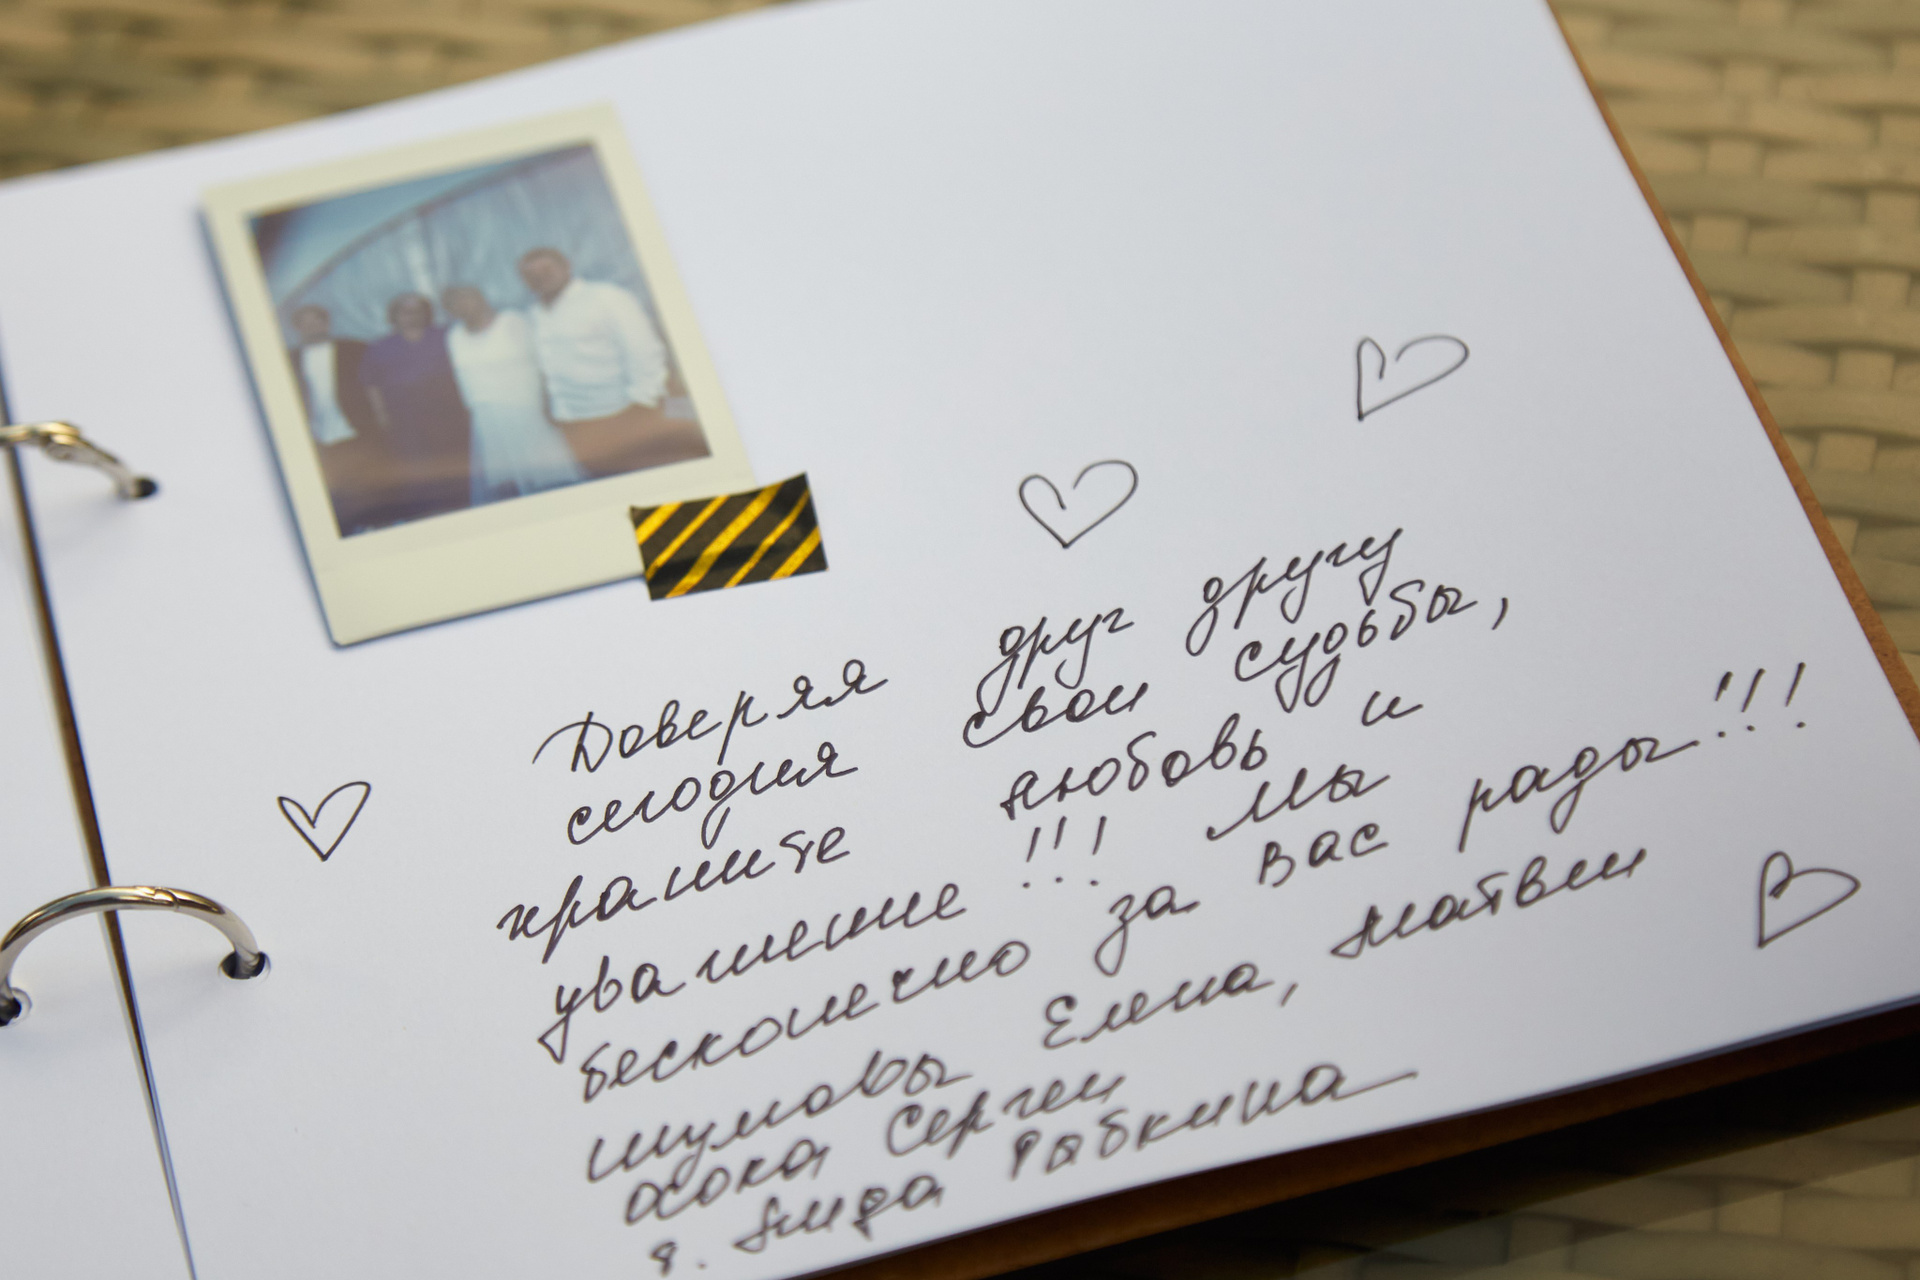 Доверяя друг другу
сегодня свои судьбы,
храните любовь и
уважение!!! Мы
бесконечно за вас рады!!!
Шумовы Елена, Матвей
Сергей
Рабкина